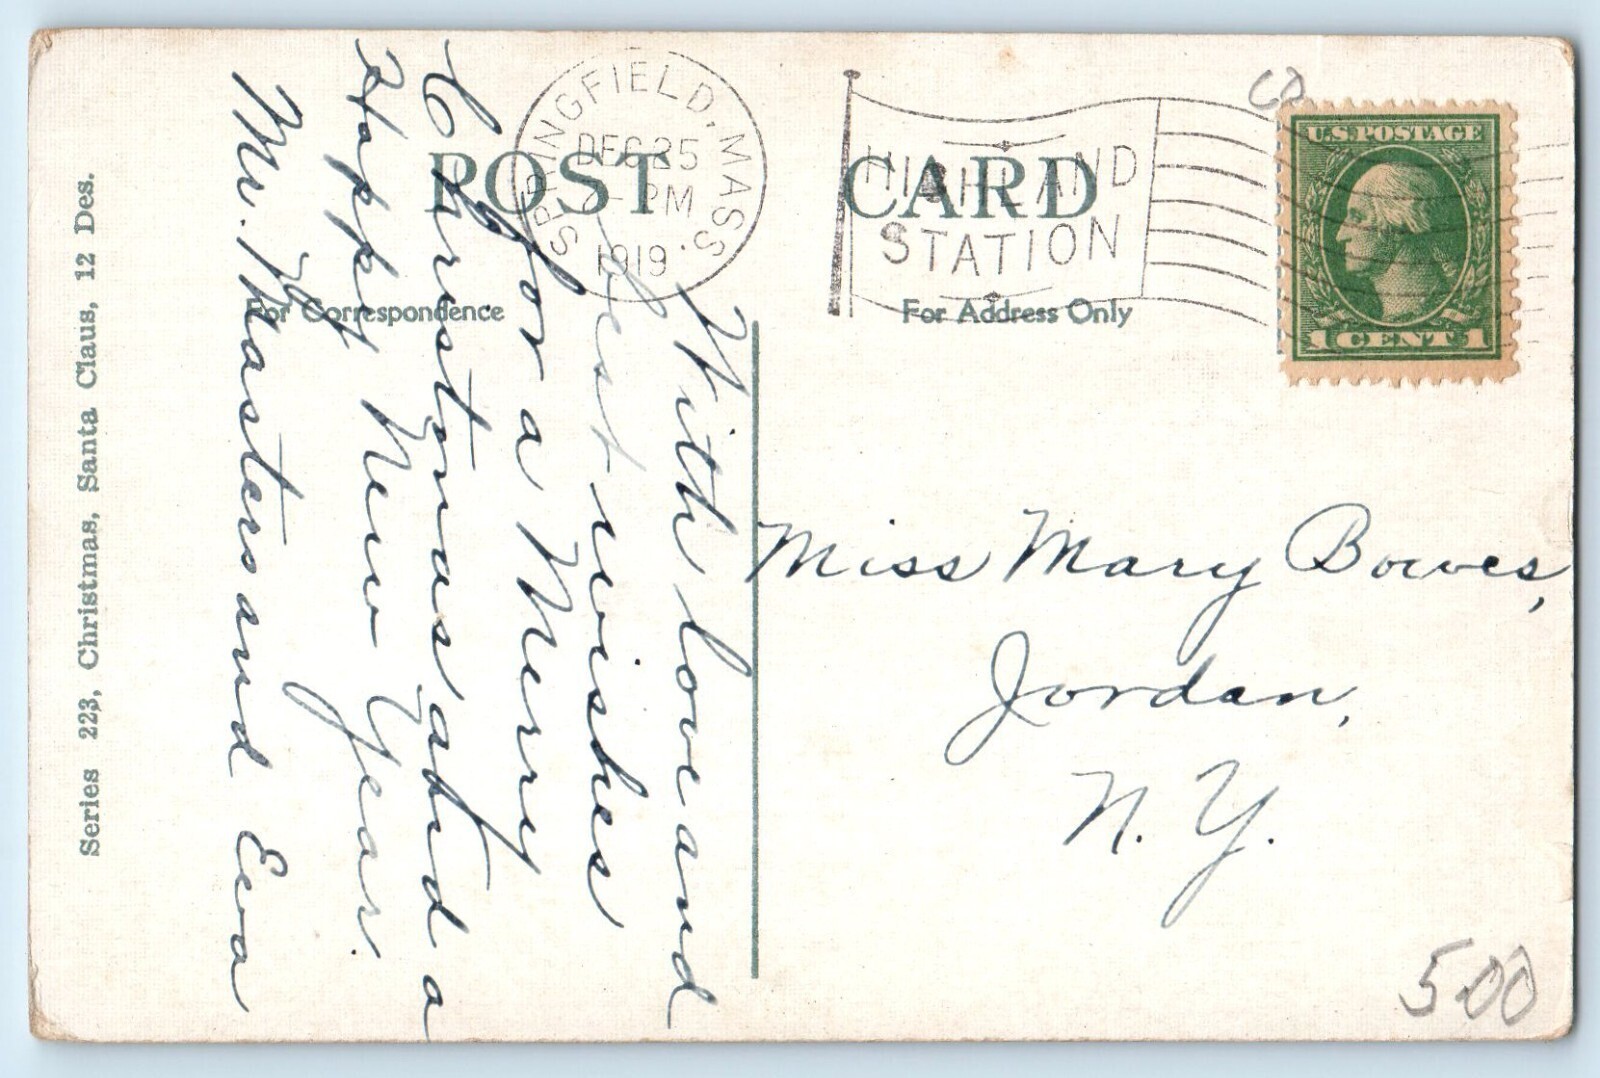 POST CARD
For Correspondence
For Address Only
SPRINGFIELD, MASS.
DEC 25
PM
1919
HIGHLAND
STATION
U.S. POSTAGE
1 CENT 1
With love and
best wishes
for a Merry
Christmas and a
Happy New Year.
Mr. Masters and Eva
Miss Mary Bowes,
Jordan,
N. Y.
Series 223, Christmas, Santa Claus, 12 Des.
500